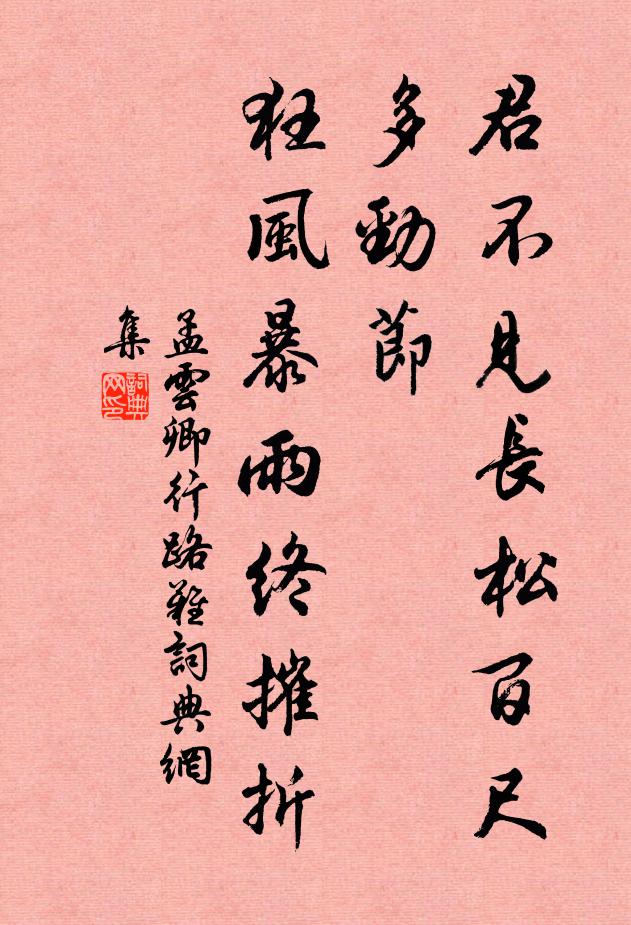 君不見長松百尺
多勁節
狂風暴雨終摧折
孟雲卿行路難詞典網
集
詞典
网印